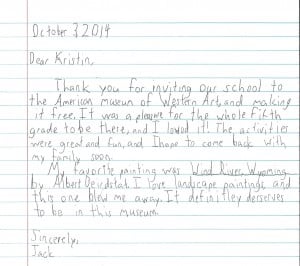 October 3 2014
Dear Kristin,
Thank you for inviting our school to
the American museum of Western Art, and making
it free. It was a pleasure for the whole fifth
grade to be there, and I loved it! The activities
were great and fun, and I hope to come back with
my family soon.
My favorite painting was Wind River, Wyoming
by Albert Beirdstat. I love landscape paintings and
this one blew me away. It definitley derserves
to be in this museum.
Sincerely,
Jack